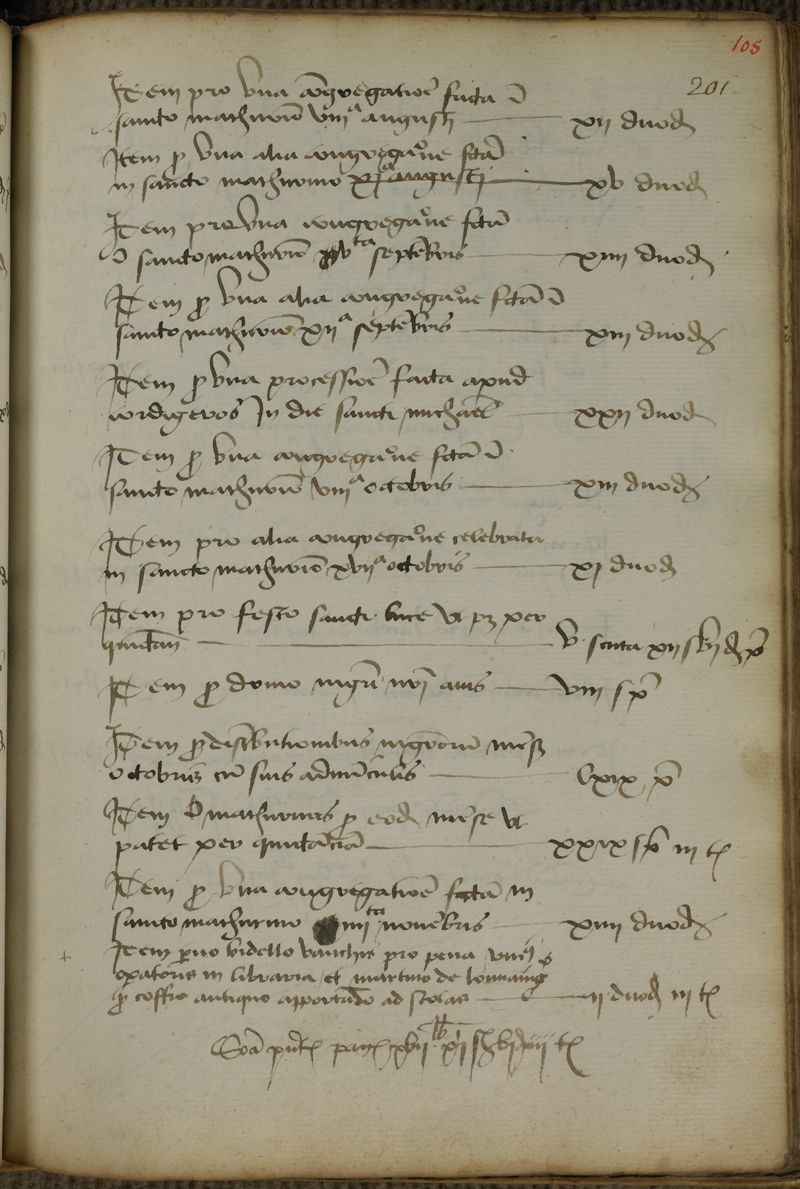 105
201
Item pro una congregatione facta in
sancto mathurino viii^a augusti xii duod
Item pro una alia congregatione facta
in sancto mathurino xi^a augusti xv duod
Item pro una congregatione facta
in sancto mathurino v^ta septembris xiiii duod
Item pro una alia congregatione facta in
sancto mathurino xii^a septembris xiii duod
Item pro una processione facta apud
cordigeros In die sancti michaelis xxii duod
Item pro una congregatione facta in
sancto mathurino viii^a octobris xiii duod
Item pro alia congregatione celebrata
in sancto mathurino xvii^a octobris xi duod
Item pro festo sancti luce ut patet per
quictan v scuta xii s
Item pro domo viii s p
Item pro distributionibus mensis
octobris cum suis
Item mathurinis pro eodem mense ut
patet per quictanciam xxix s iii t
Item pro una congregatione facta in
sancto mathurino iiii^ta novembris xiiii duod
Item bidello pro pena
in libraria et martino de
pro coffro antiquo apportando ad scolas ii duod iii t